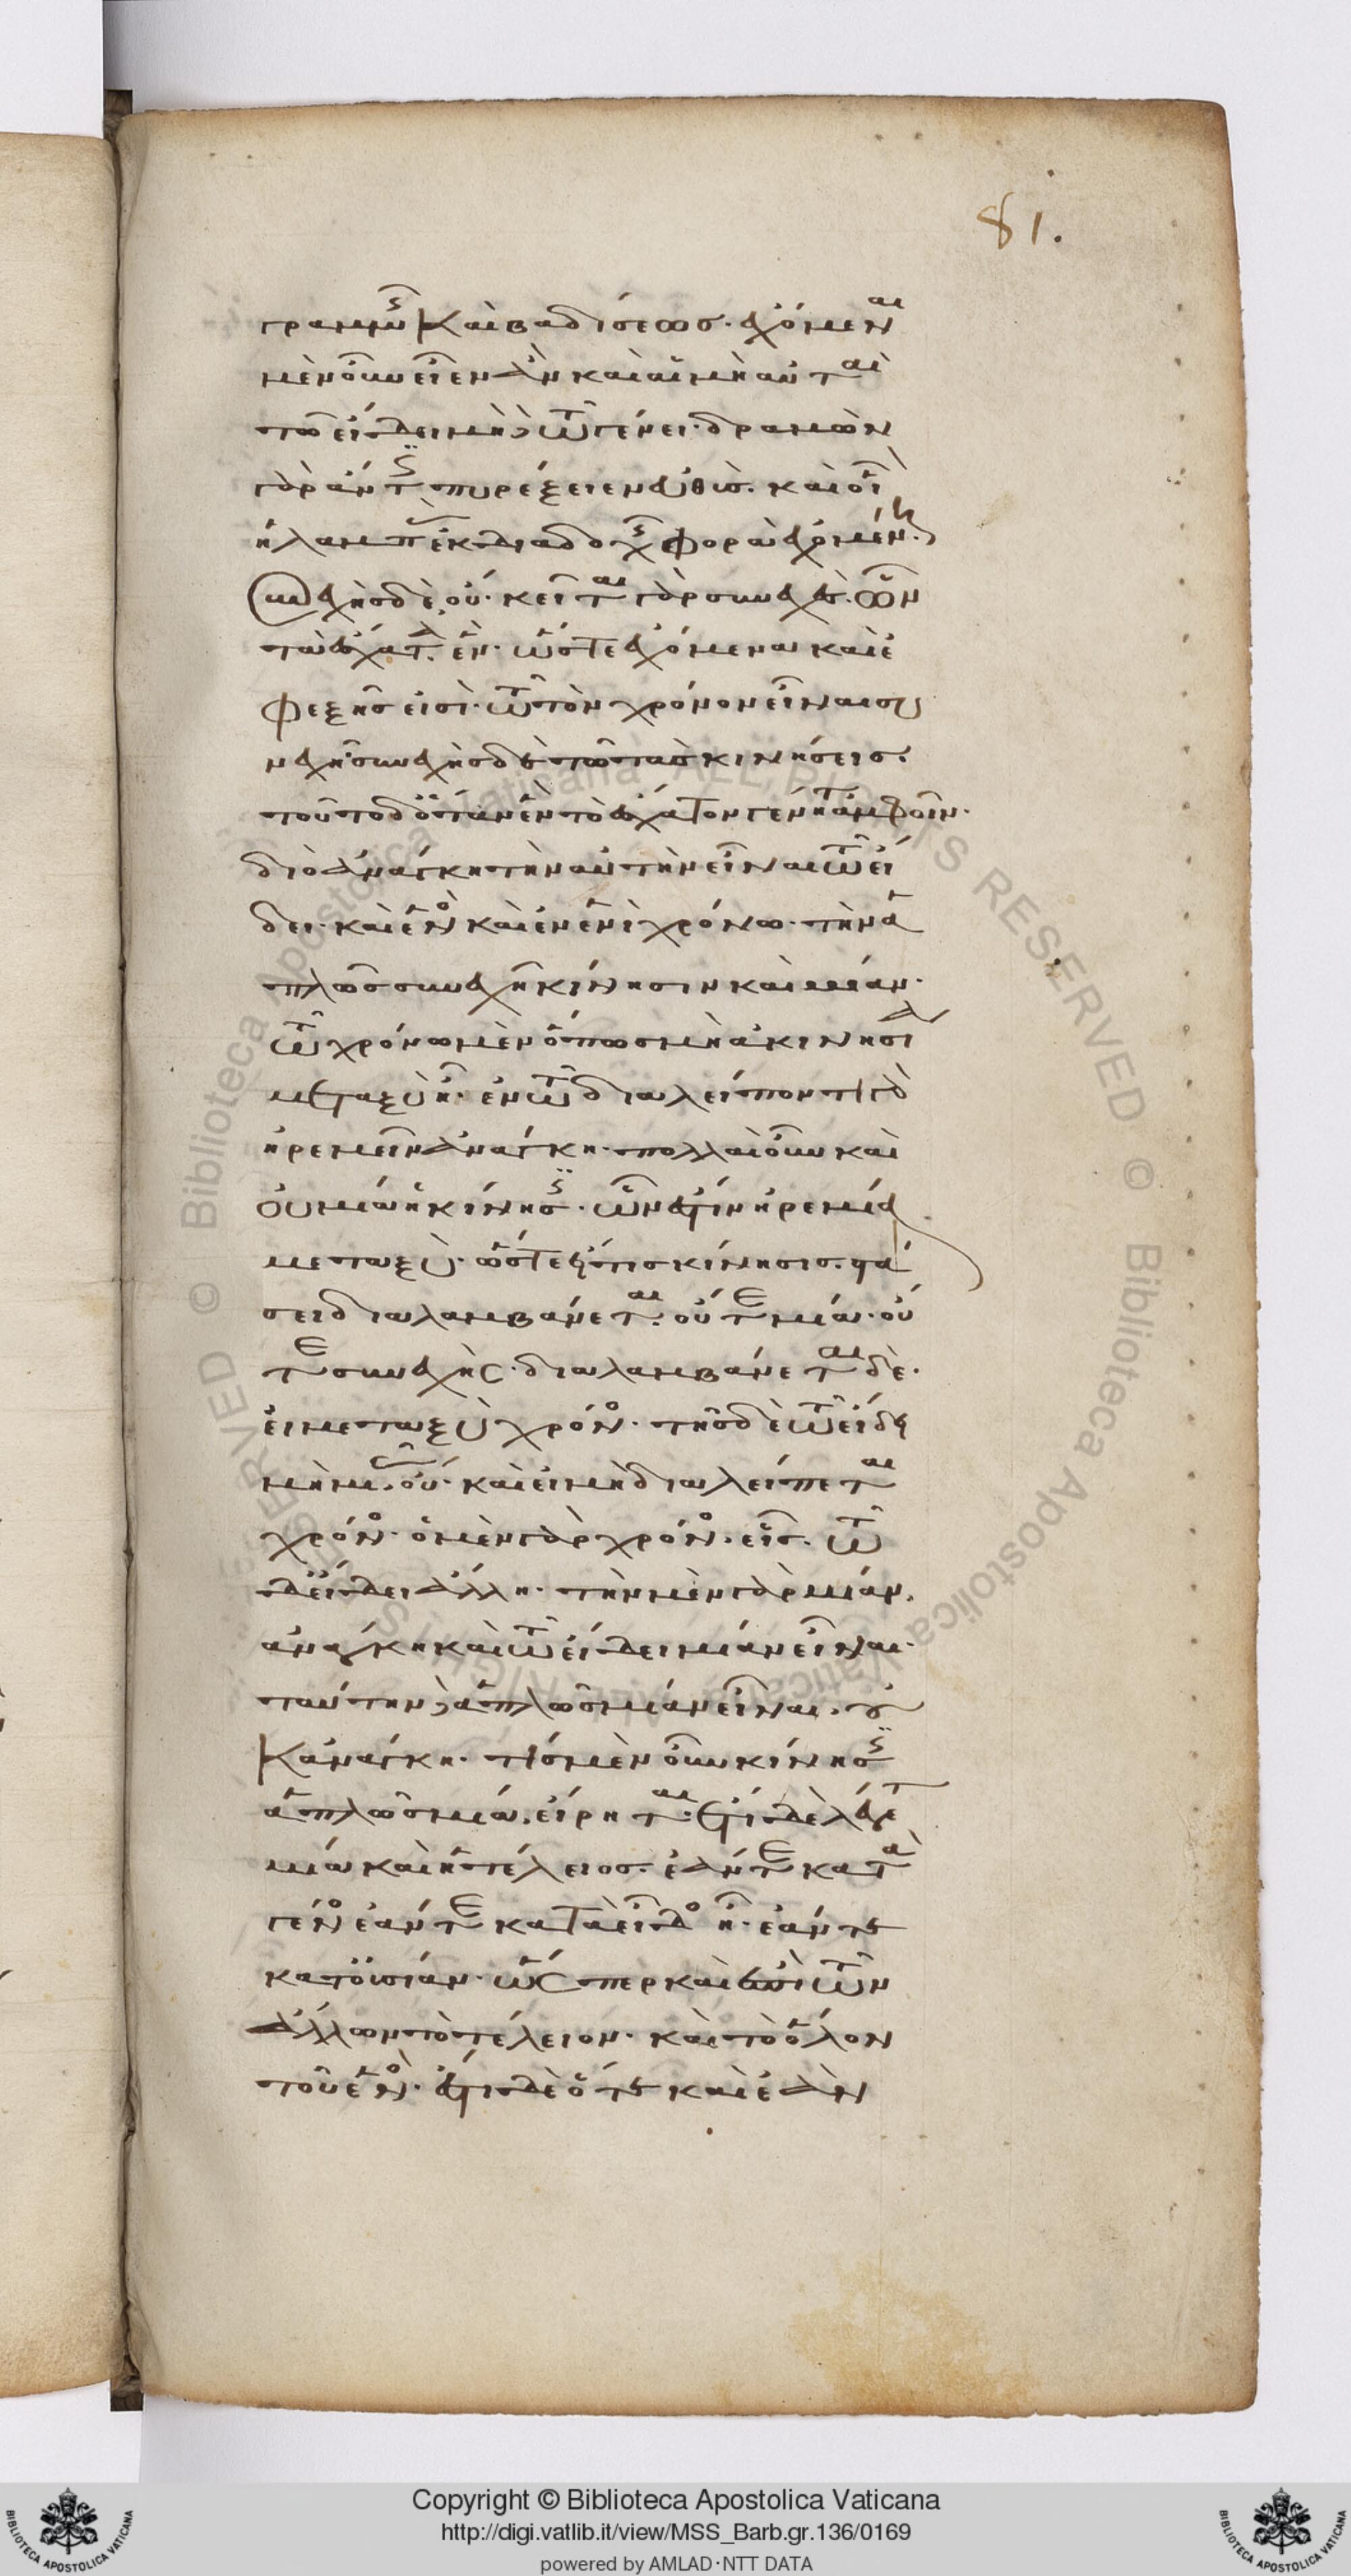 81.
γραμμῆς καὶ βαδίσεως. ἐχόμεναι
μὲν οὖν εἶεν ἂν καὶ αἱ μὴ αὐταὶ
τῶ εἴδει μηδὲ τῶ γένει. δραμὼν
γὰρ ἄν τις πυρέξειεν εὐθύς. καὶ οἷον
ἡ λαμπὰς ἐκ διαδοχῆς φορὰ ἐχομένη.
συνεχὴς δὲ, οὔ. κεῖται γὰρ συνεχὲς. ὧν
τὰ ἔσχατα ἕν. ὥστε ἐχόμεναι καὶ ἐ
φεξῆς εἰσὶ. τῶ τὸν χρόνον εἶναι συ
νεχῆ. συνεχὴς δὲ τῶ τὰς κινήσεις.
τοῦτο δ' ὅταν ἓν τὸ ἔσχατον γένηται ἀμφοῖν.
διὸ ἀνάγκη τὴν αὐτὴν εἶναι τῶ εἴ
δει. καὶ ἑνὸς καὶ ἐν ἑνὶ χρόνω. τὴν ἁ
πλῶς συνεχῆ κίνησιν καὶ μίαν.
τῶ χρόνω μὲν ὅπως μὴ ἀκινησία
μεταξὺ ᾖ. ἐν τῶ διαλείποντι γὰρ
ἠρεμεῖν ἀνάγκη. πολλαὶ οὖν καὶ
οὐ μία ἡ κίνησις. ὧν ἐστὶν ἠρεμία
μεταξύ. ὥστε εἴ τις κίνησις. στά
σει διαλαμβάνεται. οὔτε μία. οὔ
τε συνεχής. διαλαμβάνεται δὲ.
εἰ μεταξὺ χρόνος. τῆς δὲ τῶ εἴδει
μὴ μιᾶς, οὔ. καὶ εἰ μὴ διαλείπεται
χρόνος. ὁ μὲν γὰρ χρόνος. εἷς. τῶ
δ' εἴδει ἄλλη. τὴν μὲν γὰρ μίαν.
ἀνάγκη καὶ τῶ εἴδει μίαν εἶναι.
ταύτην δὲ ἁπλῶς μίαν εἶναι. οὐ
κ ἀνάγκη. τίς μὲν οὖν κίνησις
ἁπλῶς μία. εἴρηται. ἔτι δὲ λέγεται
μία καὶ ἡ τέλειος. ἐάν τε κατὰ
γένος ἐάν τε κατὰ εἶδος ᾖ. ἐάν τε
κατ' οὐσίαν. ὥσπερ καὶ ἐπὶ τῶν
ἄλλων τὸ τέλειον. καὶ τὸ ὅλον
τοῦ ἑνός. ἔστι δὲ ὅτε καὶ ἐὰν
Copyright © Biblioteca Apostolica Vaticana
http://digi.vatlib.it/view/MSS_Barb.gr.136/0169
powered by AMLAD·NTT DATA